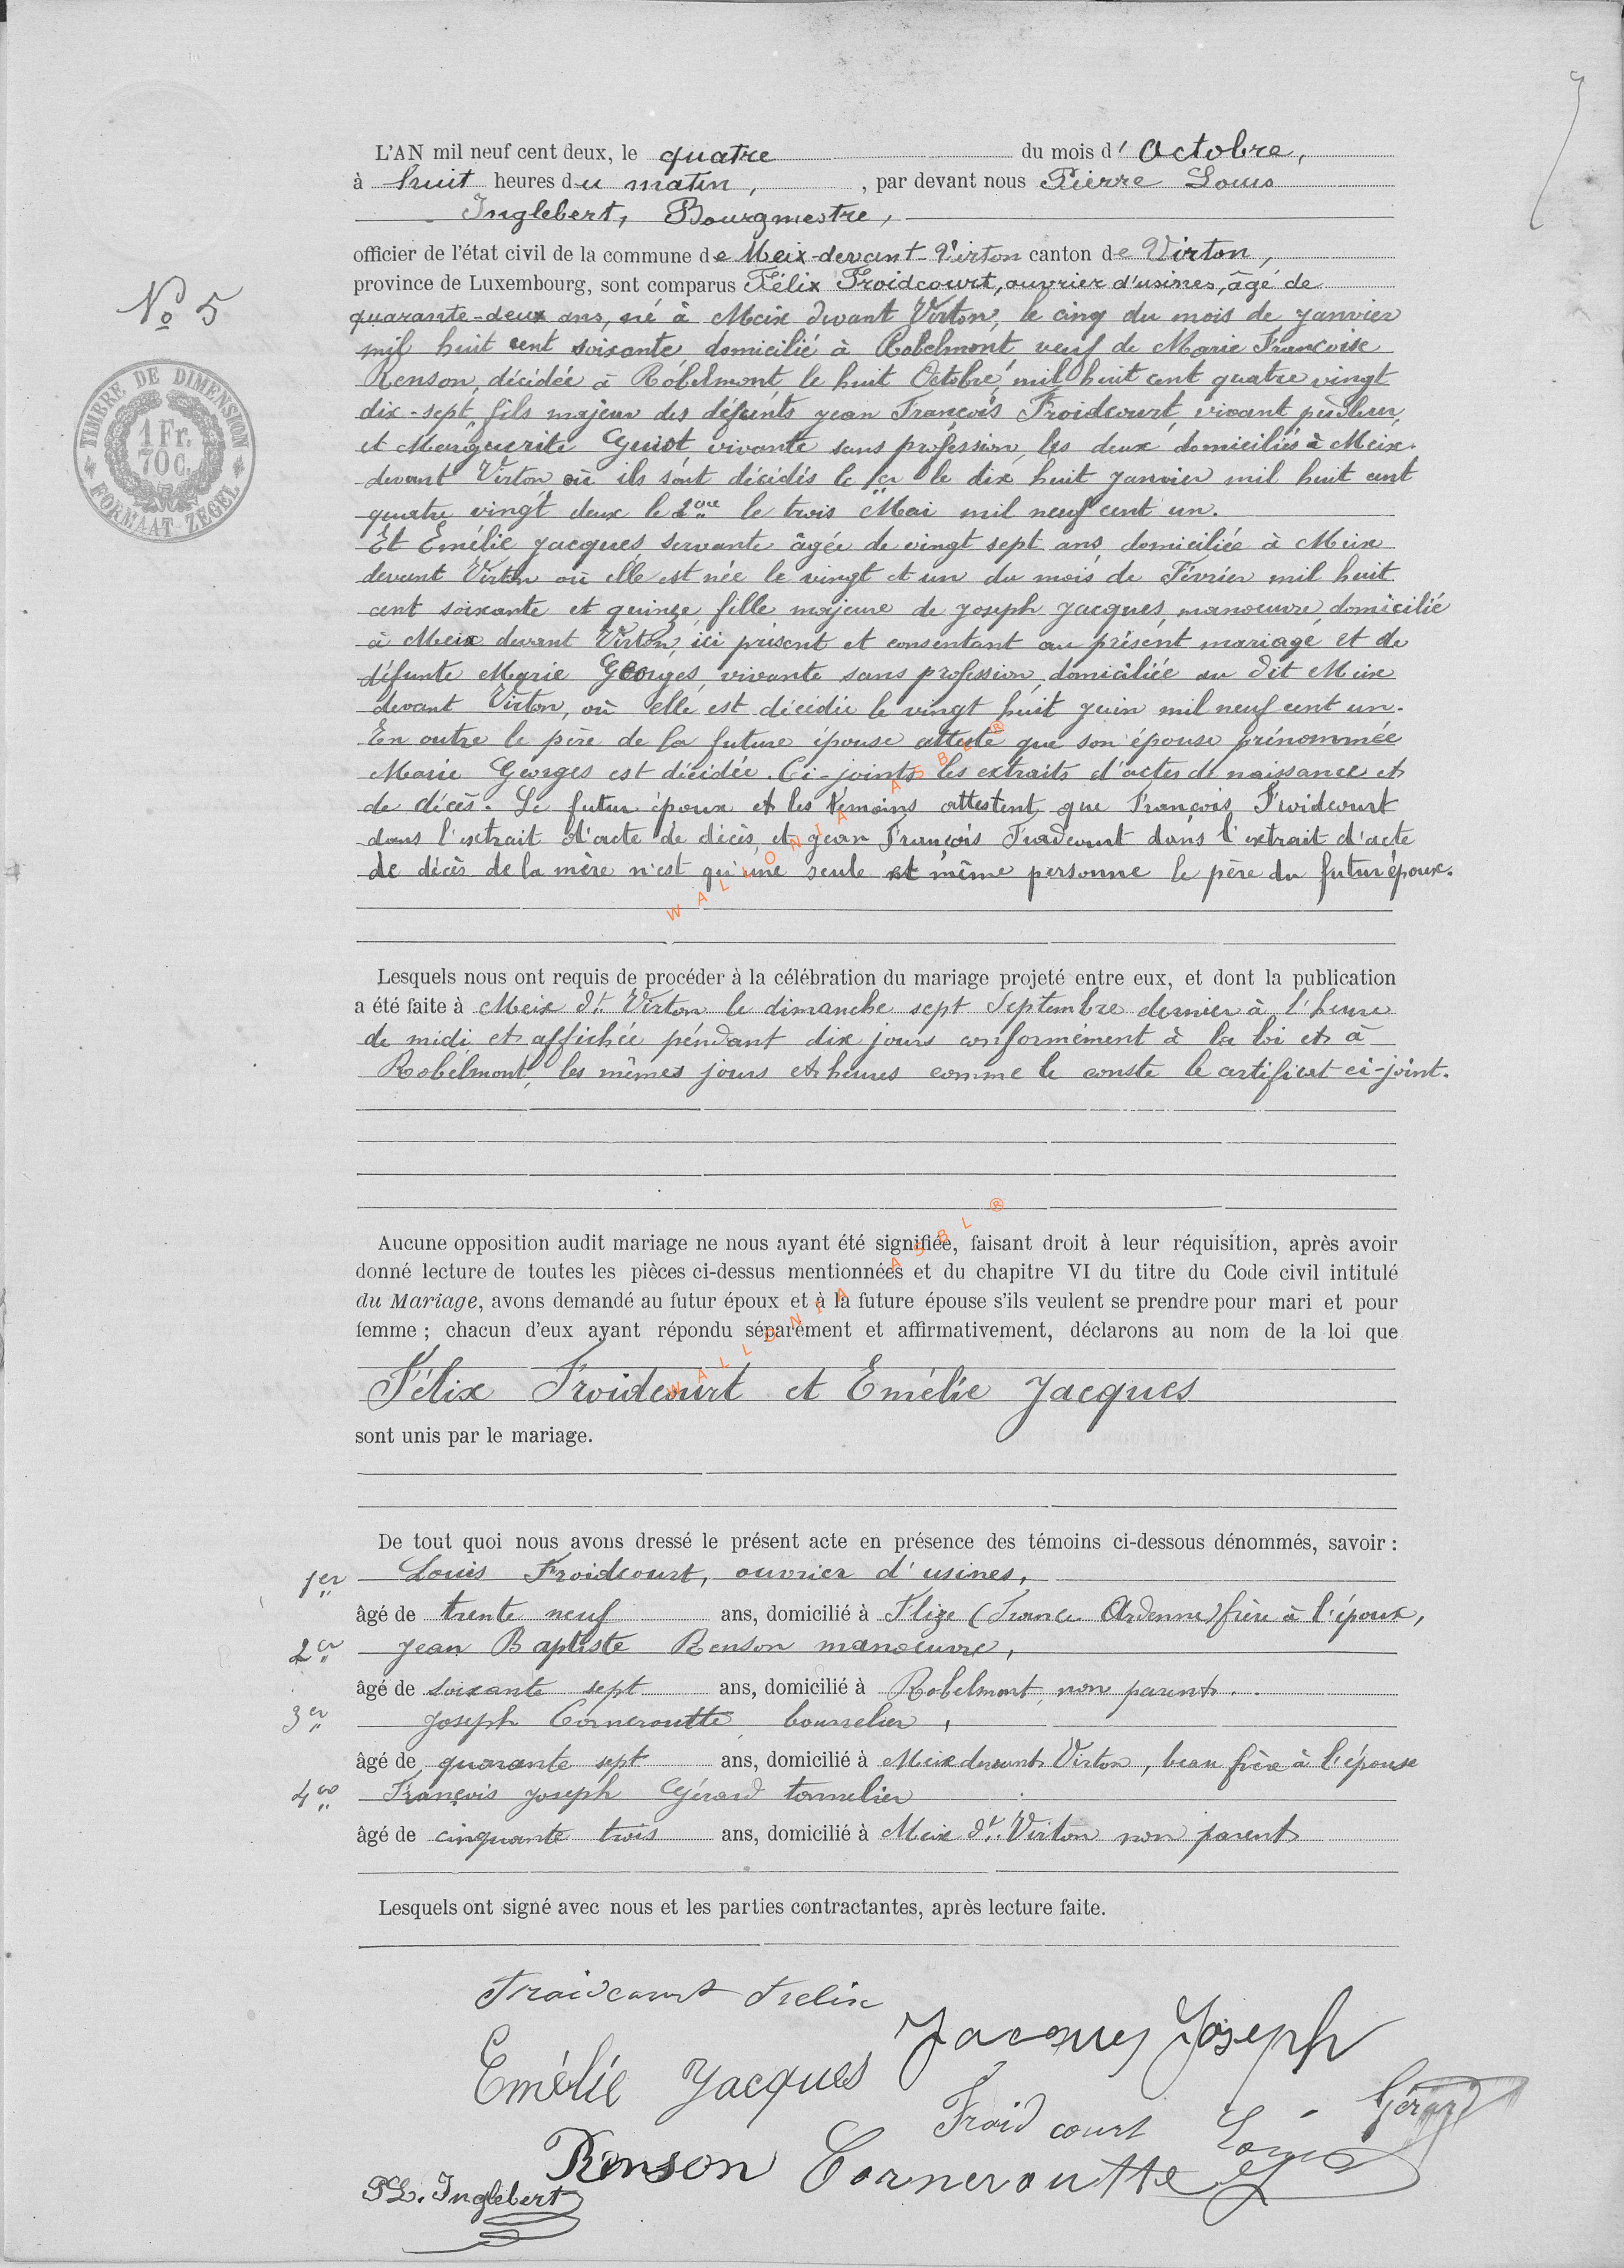 L'AN mil neuf cent deux, le quatre du mois d' Octobre,
à huit heures du matin, , par devant nous Pierre Louis
Inglebert, Bourgmestre,
officier de l'état civil de la commune de Meix-devant-Virton canton de Virton,
province de Luxembourg, sont comparus Félix Froidcourt, ouvrier d'usines, âgé de
No 5
quarante-deux ans, né à Meix devant Virton, le cinq du mois de janvier
mil huit cent soixante domicilié à Robelmont veuf de Marie Françoise
Renson, décédée à Robelmont le huit Octobre mil huit cent quatre vingt
TIMBRE DE DIMENSION
1 Fr.
70 C.
FORMAAT ZEGEL
dix-sept, fils majeur des défunts jean François Froidcourt, vivant puddleur,
et Marguerite Guiot, vivante sans profession, les deux domiciliés à Meix-
devant Virton où ils sont décédés le 1er le dix huit janvier mil huit cent
quatre vingt deux le 2me le trois Mai mil neuf cent un.
Et Emélie Jacques, servante âgée de vingt sept ans, domiciliée à Meix
devant Virton où elle est née le vingt et un du mois de Février mil huit
cent soixante et quinze, fille majeure de Joseph Jacques, manoeuvre, domicilié
à Meix devant Virton, ici présent et consentant au présent mariage, et de
défunte Marie Georges, vivante sans profession, domiciliée au dit Meix
devant Virton, où elle est décédée le vingt huit juin mil neuf cent un.
En outre le père de la future épouse atteste que son épouse prénommée
Marie Georges est décédée. Ci-joints les extraits d'actes de naissance et
de décès. Le futur époux et les témoins attestent que François Froidcourt
dans l'extrait d'acte de décès, et jean François Froidcourt dans l'extrait d'acte
de décès de la mère n'est qu'une seule et même personne le père du futur époux.
WALLONIA ASBL ®
Lesquels nous ont requis de procéder à la célébration du mariage projeté entre eux, et dont la publication
a été faite à Meix dt Virton le dimanche sept Septembre dernier à l'heure
de midi et affichée péndant dix jours conformément à la loi et à
Robelmont, les mêmes jours et heures comme le conste le certificat ci-joint.
Aucune opposition audit mariage ne nous ayant été signifiée, faisant droit à leur réquisition, après avoir
donné lecture de toutes les pièces ci-dessus mentionnées et du chapitre VI du titre du Code civil intitulé
du Mariage, avons demandé au futur époux et à la future épouse s'ils veulent se prendre pour mari et pour
femme ; chacun d'eux ayant répondu séparément et affirmativement, déclarons au nom de la loi que
WALLONIA ASBL ®
Félix Froidcourt et Emélie Jacques
sont unis par le mariage.
De tout quoi nous avons dressé le présent acte en présence des témoins ci-dessous dénommés, savoir :
1er Louis Froidcourt, ouvrier d'usines,
âgé de trente neuf ans, domicilié à Flize (France Ardenne) frère à l'époux,
2er Jean Baptiste Renson manoeuvre,
âgé de soixante sept ans, domicilié à Robelmont, non parent.
3er Joseph Corneroutte bourrelier,
âgé de quarante sept ans, domicilié à Meix devant Virton, beau frère à l'épouse
4 François Joseph Gérard tonnelier
âgé de cinquante trois ans, domicilié à Meix dt. Virton non parent
Lesquels ont signé avec nous et les parties contractantes, après lecture faite.
Froidcourt Felix
Jacques Joseph
Emélie Jacques
Gérard
Froid court Louis
Renson Corneroutte
PL. Inglebert